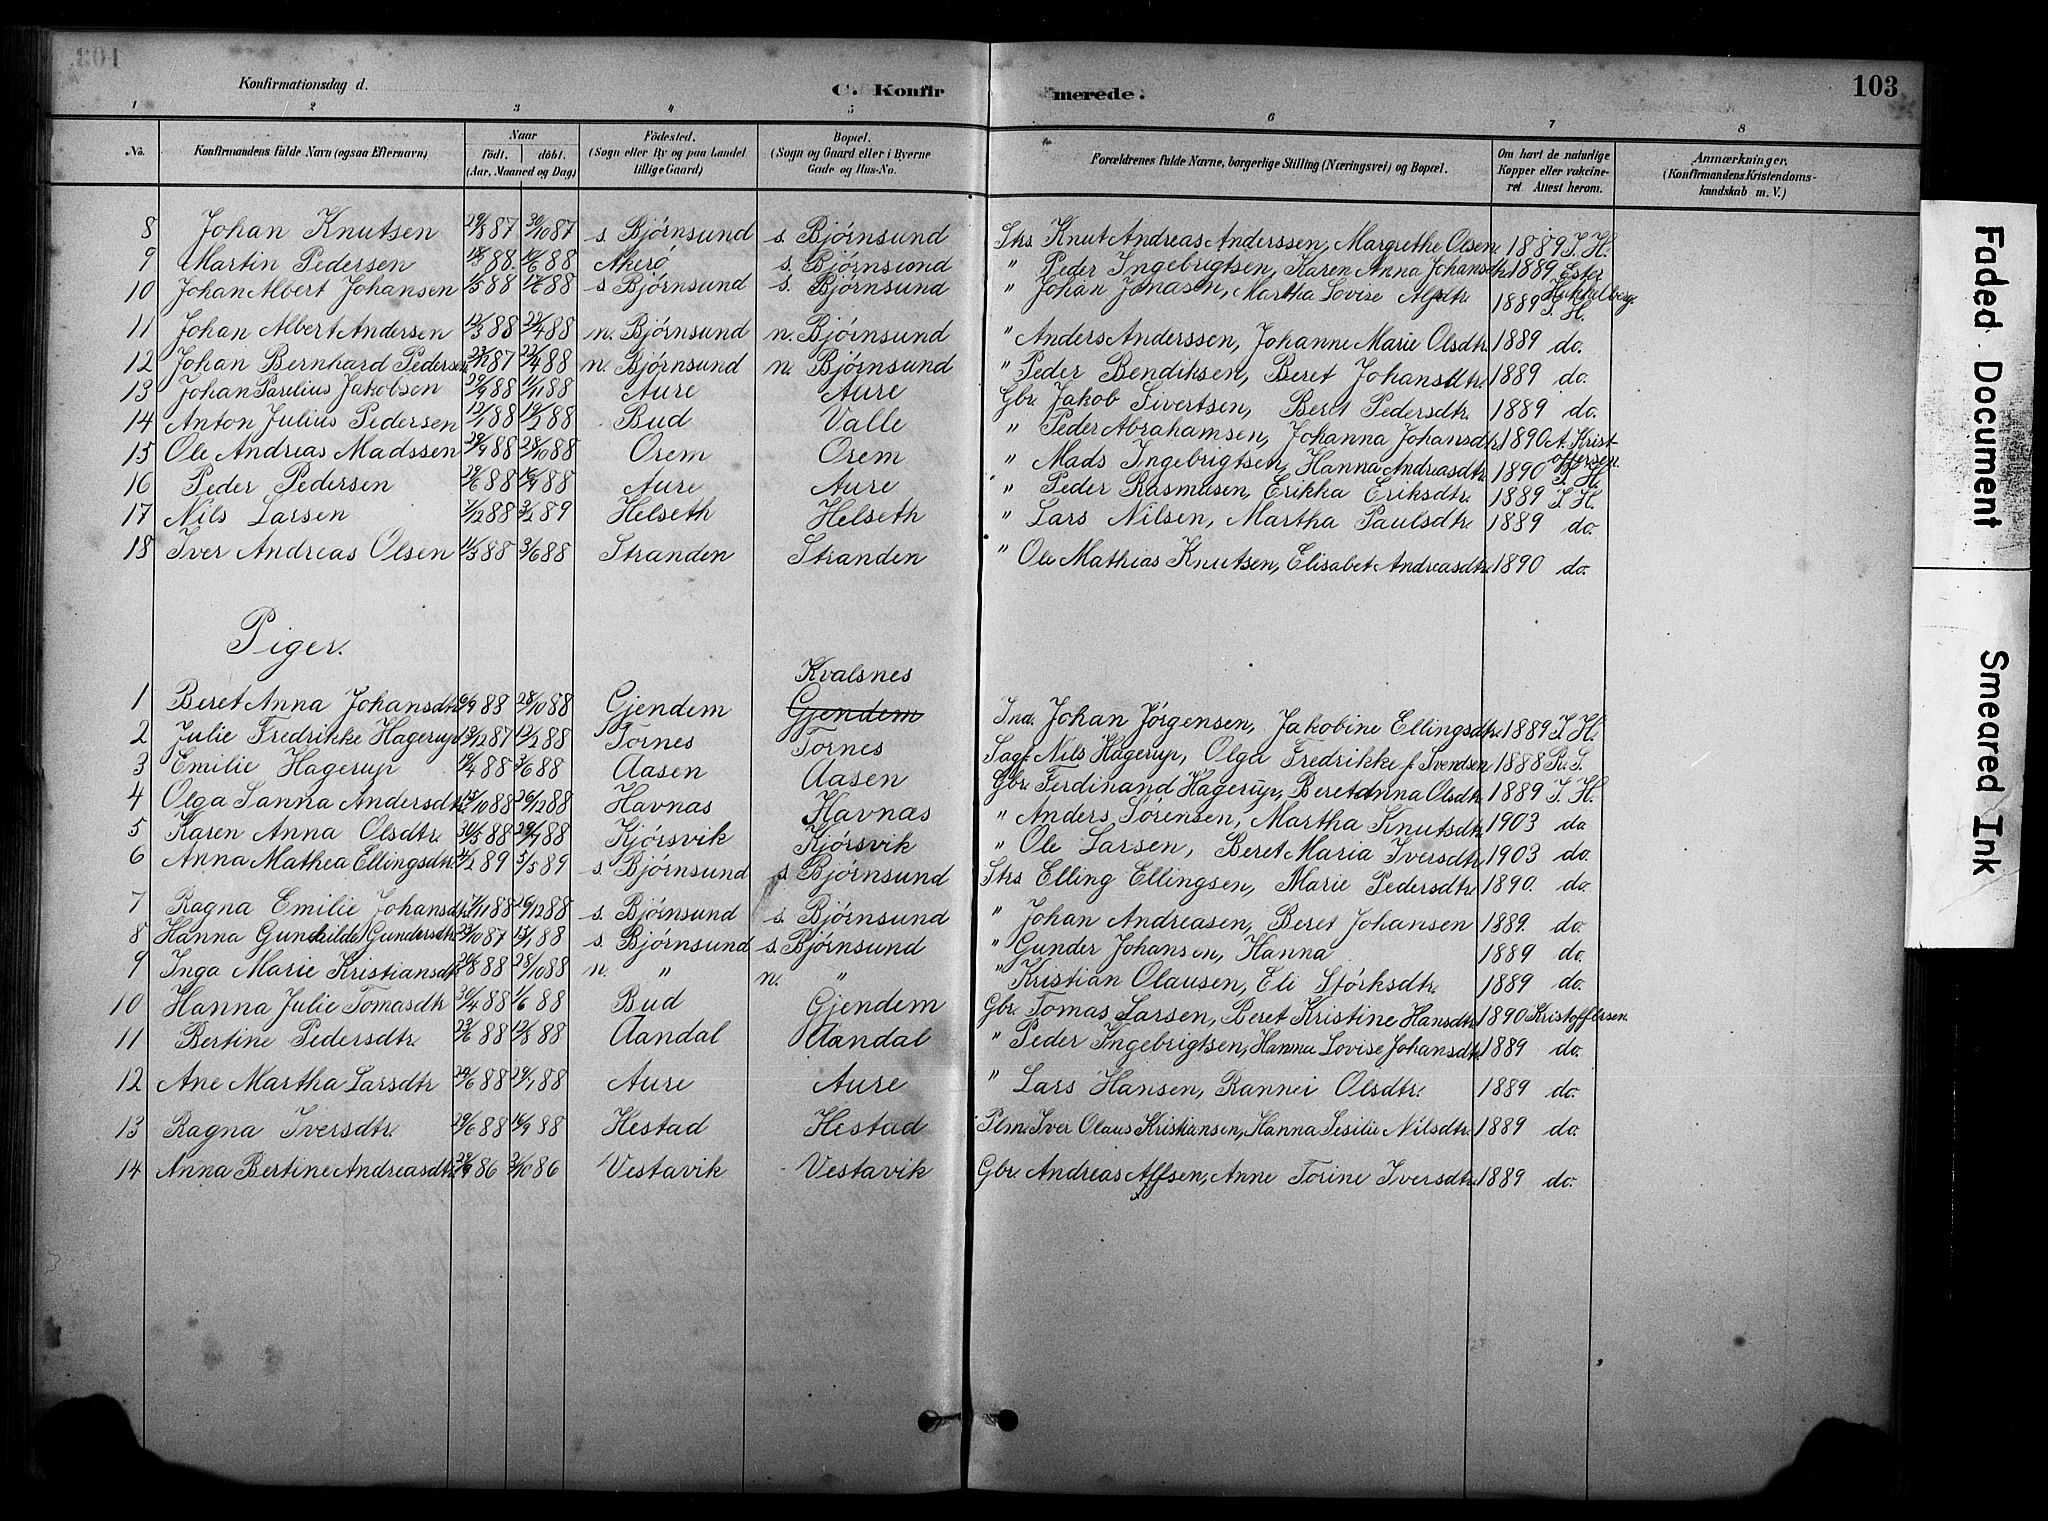 Konfirmationsdag d.
C. Konfir merede.
103
1 2 3 4 5 6 7 8
No.
Konfirmandens fulde Navn (ogsaa Efternavn)
Naar
födt. döbt.
(Aar, Maaned og Dag)
Födested.
(Sogn eller By og paa Landet
tillige Gaard)
Bopæl.
(Sogn og Gaard eller i Byerne
Gade og Hus-No.
Forældrenes fulde Navne, borgerlige Stilling (Næringsvei) og Bopæl.
Om havt de naturlige
Kopper eller vakcine-
ret. Attest herom.
Anmærkninger.
(Konfirmandens Kristendoms-
kundskab m. V.)
8 Johan Knutsen 29/8 87 30/10 87 s. Bjørnsund s. Bjørnsund Strs Knut Andreas Anderssen, Margrethe Olsen 1889 I. H.
9 Martin Pedersen 88 88 Akerø s. Bjørnsund " Peder Ingebrigtsen, Karen Anna Johansdtr 1889 Ester
10 Johan Albert Johansen 1/5 88 17/6 88 s Bjørnsund s. Bjørnsund " Johan Jonasen, Martha Lovise Alfsdtr 1889 I. H.
11 Johan Albert Andersen 12/3 88 22/4 88 n. Bjørnsund n. Bjørnsund " Anders Anderssen, Johanne Marie Olsdtr. 1889 do.
12 Johan Bernhard Pedersen 87 22/4 88 n. Bjørnsund n. Bjørnsund " Peder Bendiksen, Beret Johansdtr. 1889 do.
13 Johan Parelius Jakobsen 88 11/11 88 Aure Aure Gbr. Jakob Sivertsen, Beret Pedersdtr. 1889 do.
14 Anton Julius Pedersen 12/1 88 19/2 88 Bud Valle " Peder Abrahamsen, Johanna Johansdtr. 1890 A. Krist-
offersen
15 Ole Andreas Madssen 29/9 88 28/10 88 Orem Orem " Mads Ingebrigtsen, Hanna Andreasdtr. 1890 I. H.
16 Peder Pedersen 88 16/9 88 Aure Aure " Peder Rasmusen, Erikka Eriksdtr. 1889 I. H.
17 Nils Larsen 1/12 88 3/2 89 Helseth Helseth " Lars Nilsen, Martha Paulsdtr. 1889 do.
18 Iver Andreas Olsen 11/3 88 3/6 88 Stranden Stranden " Ole Mathias Knutsen, Elisabet Andreasdtr. 1890 do.
Piger.
Kvalsnes
1 Beret Anna Johansdtr 9/9 88 28/10 88 Gjendem Gjendem Ind. Johan Jørgensen, Jakobine Ellingsdtr. 1889 I. H.
2 Julie Fredrikke Hagerup 12/12 87 12/2 88 Tornes Tornes Sagf. Nils Hagerup, Olga Fredrikke f. Svendsen 1888 R. S.
3 Emilie Hagerup 19/4 88 3/6 88 Aasen Aasen Gbr. Ferdinand Hagerup, Beretanna Olsdtr. 1889 I. H.
4 Olga Sanna Andersdtr 15/10 88 26/12 88 Havnas Havnas " Anders Sørensen, Martha Knutsdtr. 1903 do
5 Karen Anna Olsdtr. 30/5 88 29/7 88 Kjørsvik Kjørsvik " Ole Larsen, Beret Maria Iversdtr. 1903 do.
6 Anna Mathea Ellingsdtr. 89 5/5 89 s. Bjørnsund s. Bjørnsund Strs Elling Ellingsen, Marie Pedersdtr. 1890. do.
7 Ragna Emilie Johansdtr 11 88 26/12 88 s. Bjørnsund s. Bjørnsund " Johan Andreasen, Beret Johansen 1889. do.
8 Hanna Gunhilde Gundersdtr. 23/10 87 15/1 88 s. Bjørnsund s. Bjørnsund " Gunder Johansen, Hanna 1889 do.
9 Inga Marie Kristiansdtr. 26/8 88 28/10 88 n. " n. " " Kristian Olausen, Eli Størksdtr. 1889 do.
10 Hanna Julie Tomasdtr 30/4 88 1/6 88 Bud Gjendem Gbr. Tomas Larsen, Beret Kristine Hansdtr. 1890 Kristoffersen.
11 Bertine Pedersdtr. 23/6 88 12/8 88 Aandal Aandal " Peder Ingebrigtsen, Hanna Lovise Johansdtr. 1889 do.
12 Ane Martha Larsdtr 24/6 88 29/7 88 Aure Aure " Lars Hansen, Rannei Olsdtr. 1889 do.
13 Ragna Iversdtr. 29/6 88 16/9 88 Hestad Hestad Plm. Iver Olaus Kristiansen, Hanna Sisilie Nilsdtr. 1889 do.
14 Anna Bertine Andreasdtr. 86 3/10 86 Vestavik Vestavik Gbr. Andreas Affsen, Anne Torine Iversdtr. 1889 do.
Faded Document
Smeared Ink